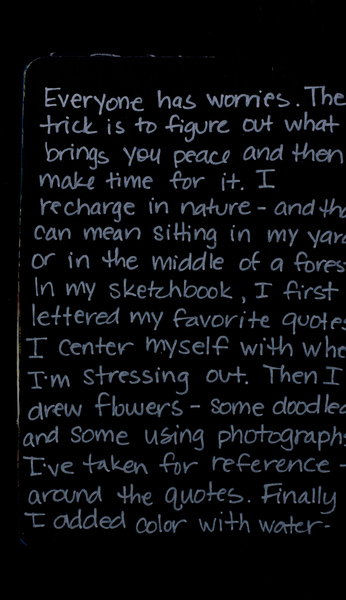 Everyone has worries. The
trick is to figure out what
brings you peace and then
make time for it. I
recharge in nature - and tha
can mean sitting in my yar
or in the middle of a fores
In my sketchbook, I first
lettered my favorite quote
I center myself with whe
I'm stressing out. Then I
drew flowers - some doodled
and some using photograph
I've taken for reference -
around the quotes. Finally
I added color with water-